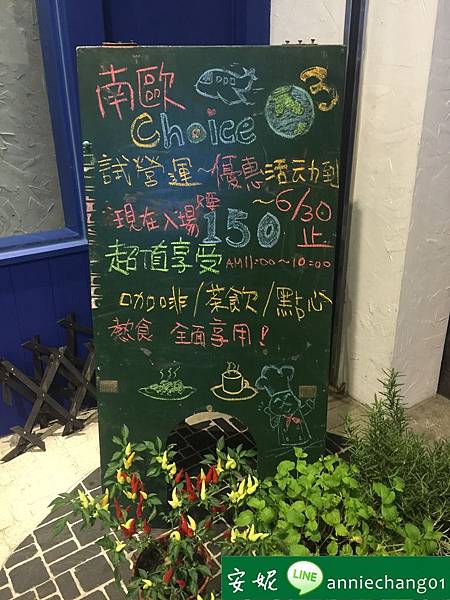 南歐 3
Choice
試營運~優惠活动到
~6/30
現在入場只要150 止
超值享受 AM11:00~10:00
咖啡/茶飲/點心
熱食 全面享用!
安妮 LINE anniechang01